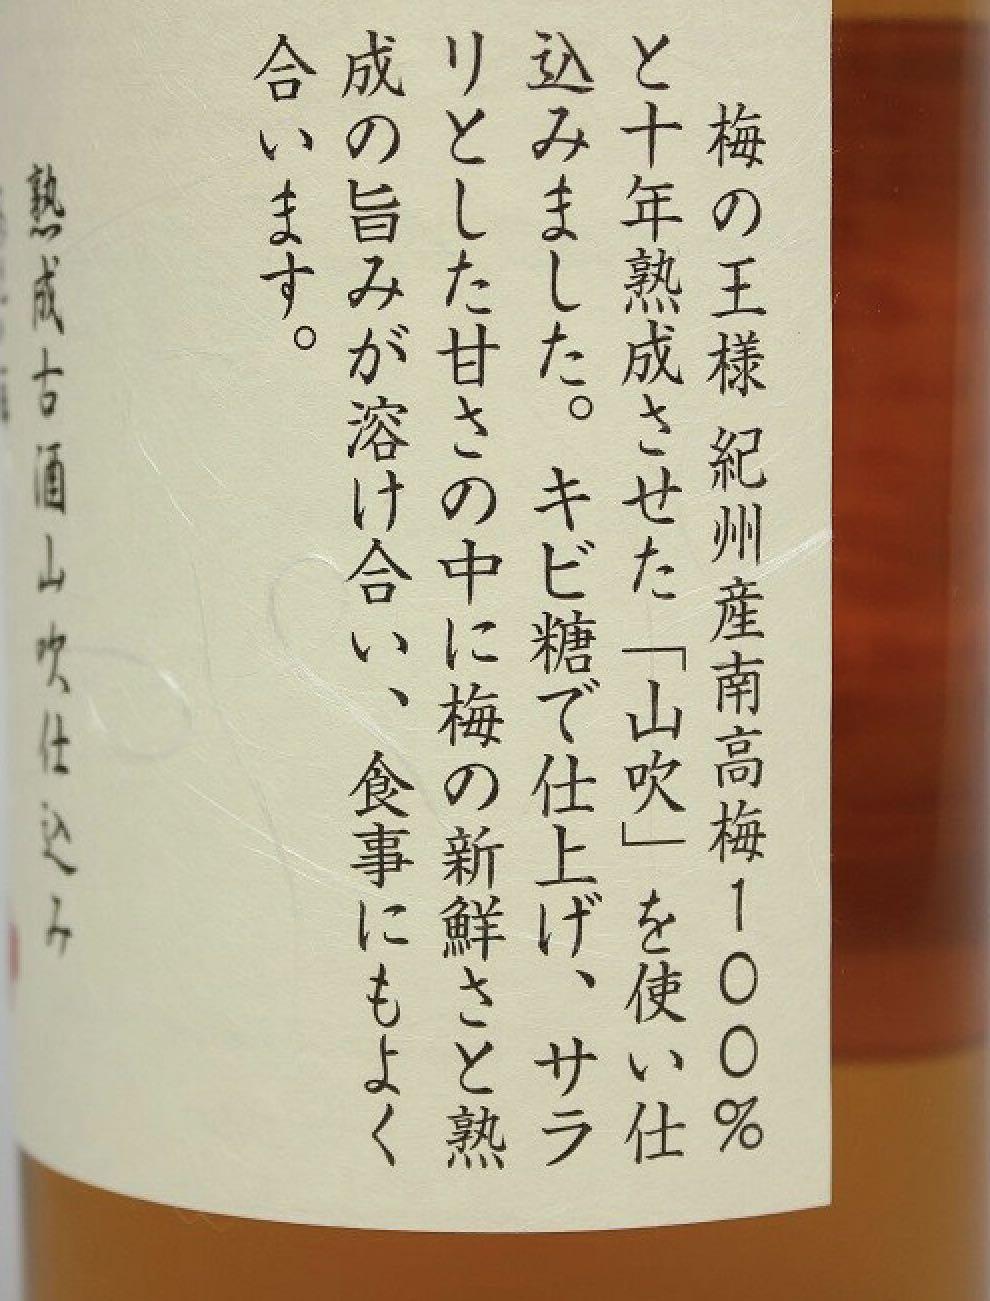 梅の王様 紀州産南高梅100%
と十年熟成させた「山吹」を使い仕
込みました。キビ糖で仕上げ、サラ
リとした甘さの中に梅の新鮮さと熟
成の旨みが溶け合い、食事にもよく
合います。
熟成古酒山吹仕込み